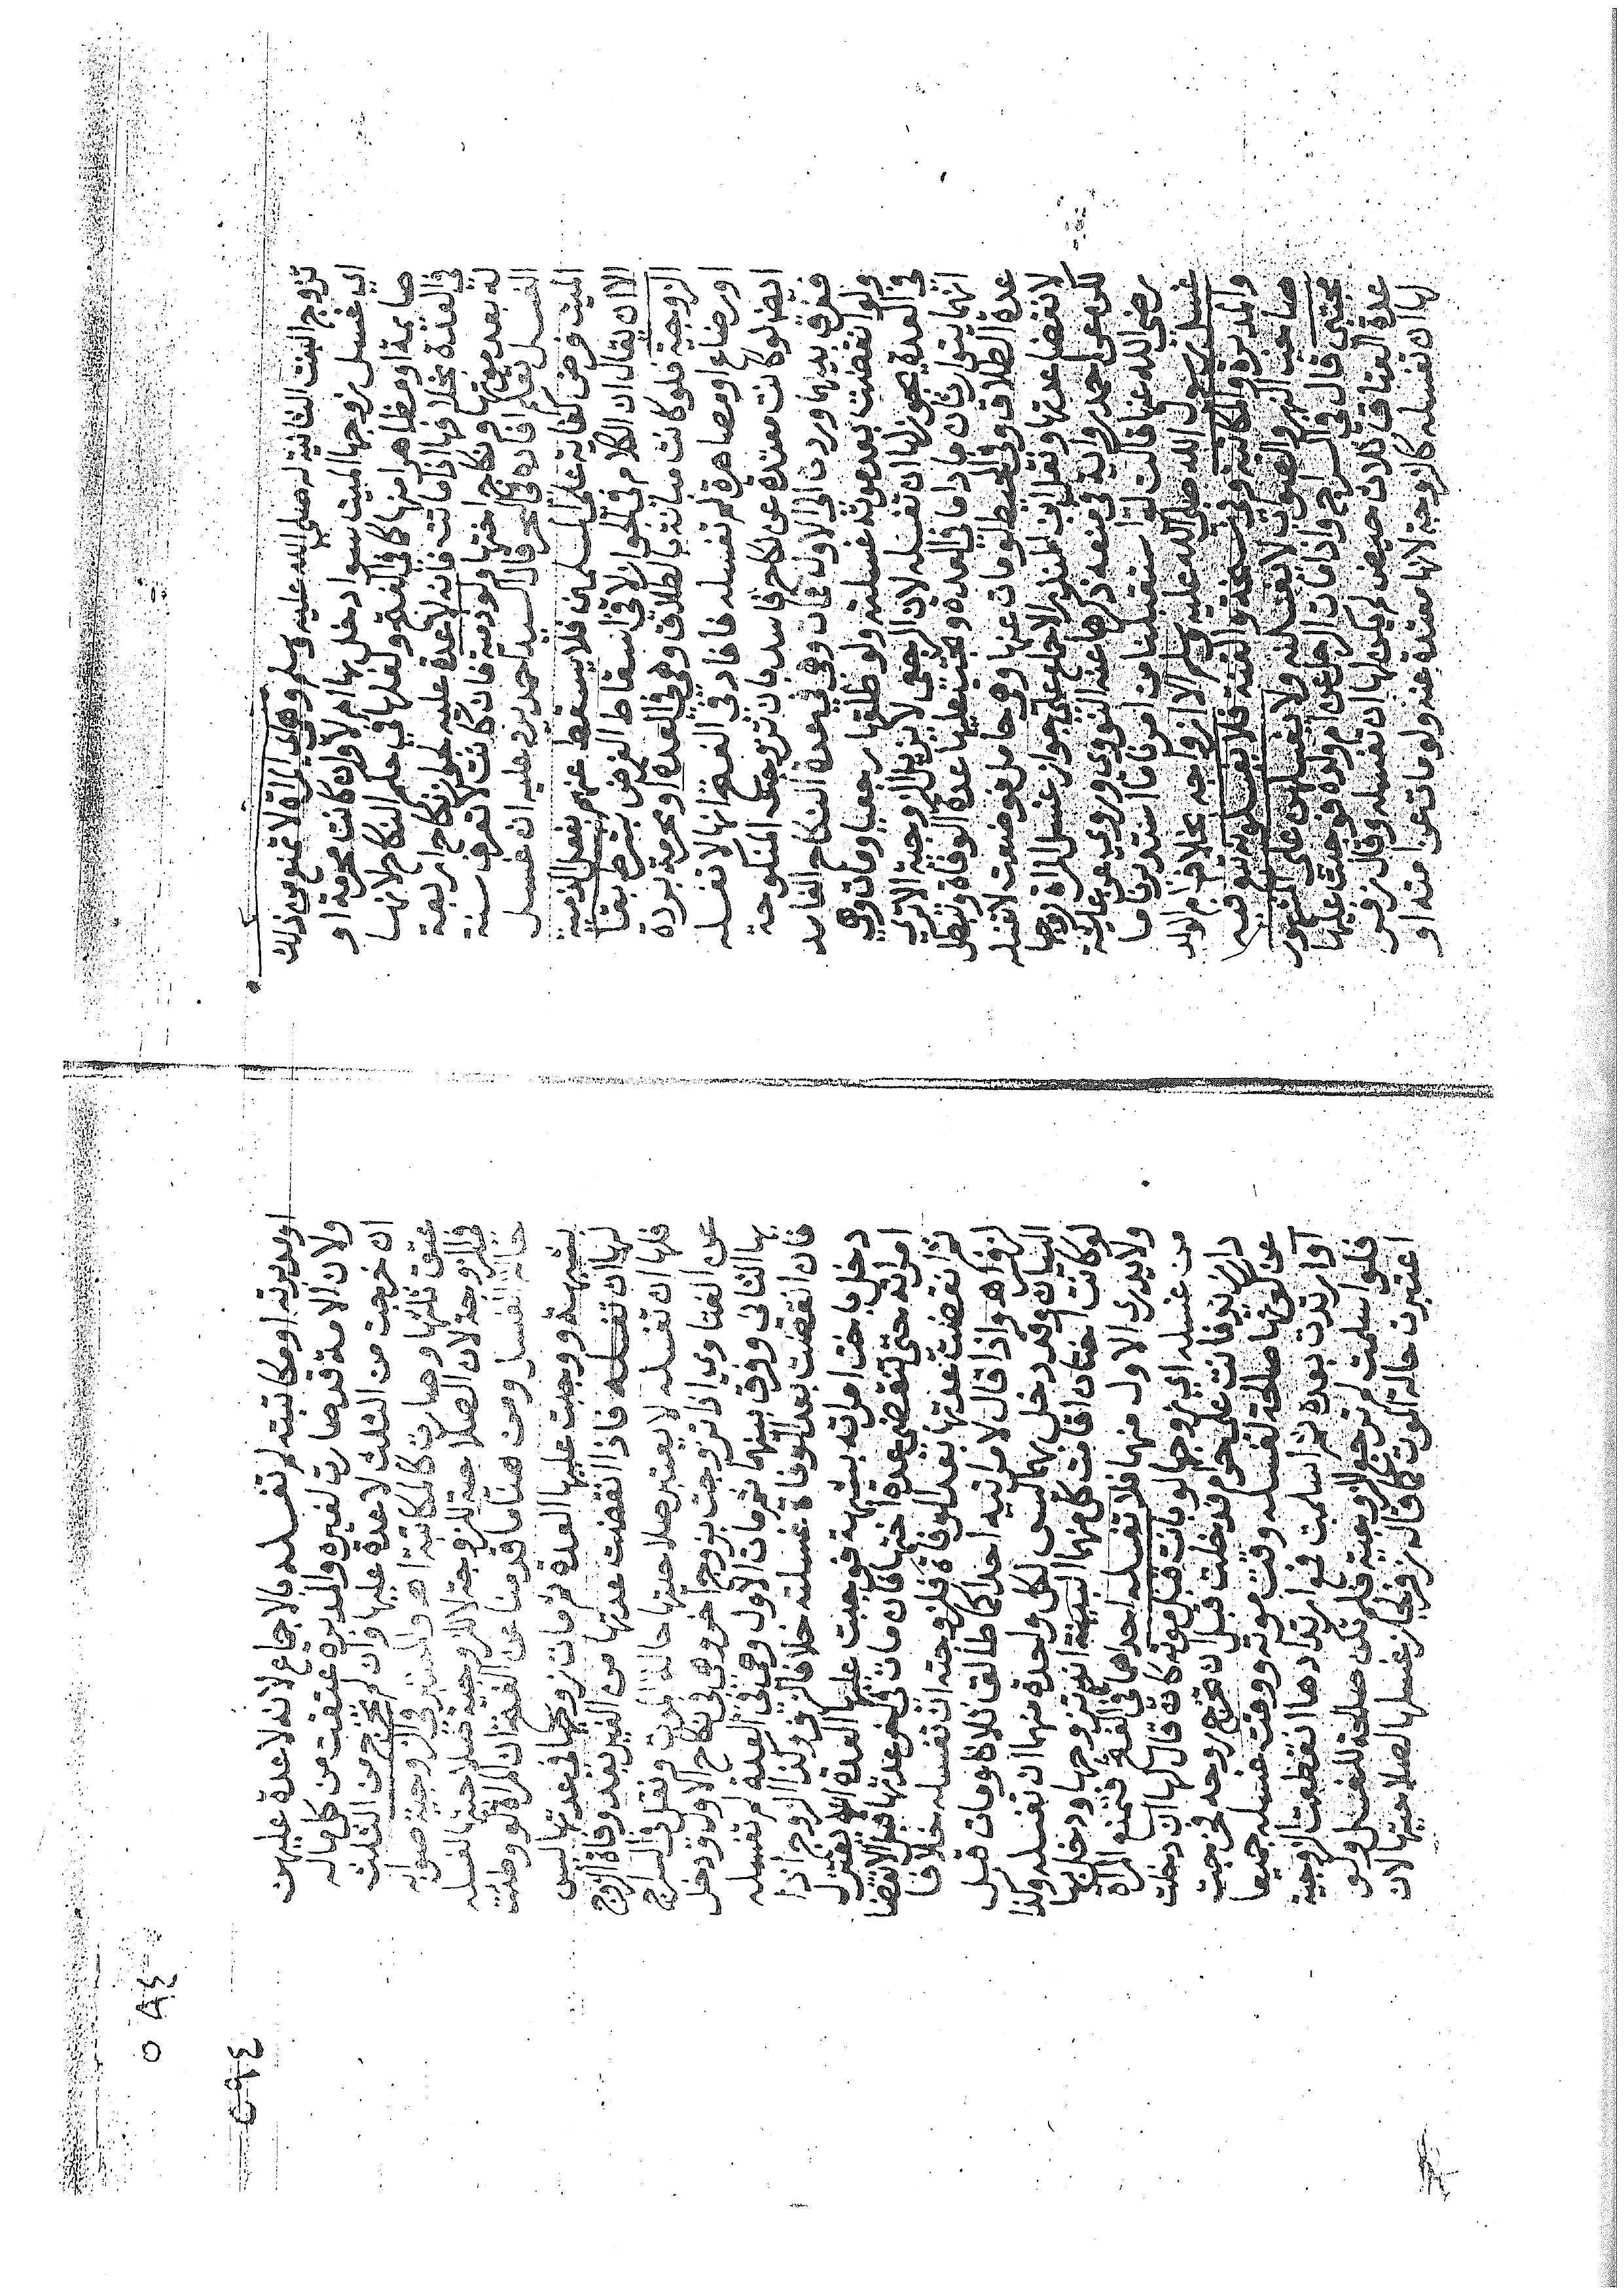 تزوج البنت الثانية له صلى الله عليه وسلم وهي اي المراة لا تمنع من ذلك
اي غسل زوجها الميت سوا دخل بها ام لا وان كانت محرمة او
صايمة او مظاهر منها كما في الفتح ولعلها في حكم النكاح لانها
في العدة بخلافها اذا ماتت فانه لا عدة عليه لجواز نكاح اربعة
له بعد موتها ونكاح اختها ولو ذمية فان كانت لا تعرف سنة
الغسل تعلم افاده في البحر قال السيد احمد يرد عليه ان غسل
الميت فرض كفاية على المسلمين فلا يسقط عنهم بفعل الذمية
الا ان يقال ان الكلام في الجواز لا في اسقاط الفرض بشرط بقا
الزوجية فلو كانت مبانة بالطلاق وهي في العدة او محرمة بردة
او رضاع او مصاهرة لم تغسله في الفتح انها لا تغسله
ايضا لو كانت معتدة عن نكاح فاسد بان تزوجت المنكوحة
ففرق بينهما وردت الى الاول فمات وهي في عدة النكاح الفاسد
ولو انقضت بعد موته غسلته ولو طلقها رجعيا ومات وهي
في العدة يجوز لها ان تغسله لان الرجعي لا يزيل الزوجية الا ترى
انهما يتوارثان ما داما في العدة ويجب عليها عدة الوفاة وتبطل
عدة الطلاق وفي المحيط لو مات عنها وهي حامل فوضعت لا تغسله
لانقضا عدتها ونقل ابن المنذر الاجماع على جواز غسل المراة زوجها
لكن عن احمد رواية في منعه ذكرها عنه النووي وروي عن عايشة
رضي الله عنها قالت لو استقبلنا من امرنا ما استدبرنا ما
غسل رسول الله صلى الله عليه وسلم الا ازواجه بخلاف ام الولد
والمدبرة والمكاتبة وفي نسخة والقنة فلا يغسلونه
صاحب النهر والصواب لا تغسلنه ولا يغسلهن على المشهور
مجتبى قال في السراج واذا مات الرجل عن ام ولده فوجبت عليها
عدة العتاق ثلاث حيض لم يكن لها ان تغسله وقال زفر
لها ان تغسله كالزوجة لانها معتدة عنه ولو مات عن امته او
او مدبرته او مكاتبته لم تغسله بالاجماع لانه لا عدة عليهن
ولان الامة قد صارت لغيره والمدبرة عتقت من كل ماله
ان خرجت من الثلث لا عدة عليها وان لم تخرج من الثلث
عتق ثلثها وصارت كالمكاتبة اه والمعتبر في الزوجية صوابه
في الزوجة لان الصلاحية للزوجة لا للزوجية صلاحيتها لغسله
حالة الغسل ومن هنا ما قدمنا عن الفتح ان المراة لو وطئت
بشبهة ووجبت عليها العدة ثم مات زوجها في عدتها ليس
لها ان تغسله فاذا انقضت عدتها من الغير بعد وفاة الزوج
فلها ان تغسله لا يعتبر صلاحيتها حالة الموت ونقل في السراج
عن الفتاوى اذا تزوجت بزوج اخر وهي في نكاح الاول ودخل
بها الثاني وفرق بينهما ثم مات الاول وهي في العدة لم تغسله
فان انقضت بعد الوفاة غسلته خلافا لزفر وكذا الزوج اذا
دخل باخت امراته بشبهة فوجبت عليها العدة لا يقترب
امراته حتى تنقضي عدة اختها فان مات في عدتها قبل الانقضا
ثم انقضت عدتها بعد الوفاة فلزوجته ان تغسله خلافا
لزفر اهـ واذا قال لامراتيه احداكما طالق ثلاثا ومات قبل
البيان وقد دخل بهما ليس لكل واحدة منهما ان تغسله وكذا
لو كانت اختان اقامت كل منهما البينة انه تزوجها ودخل بها
ولا يدرى الاول منهما فلا تغسله احداهما في الفتح فتمنع المراة
من غسله اي زوجها لو بانت قبل موته كان قال لها ان دخلت
دار زيد فانت علي حرام فدخلت قبل ان تخرج روحه فخرجت
عن كونها صالحة لغسله وقت موته ووقت غسله جميعا
او ارتدت بعده ثم اسلمت فبارتدادها انقطعت الزوجية
فلو اسلمت لم ترجع الزوجية فلم تكن صالحة للغسل ولو
اعتبرت حالة الموت كما قاله زفر لجاز غسلها لصلاحيتها لان